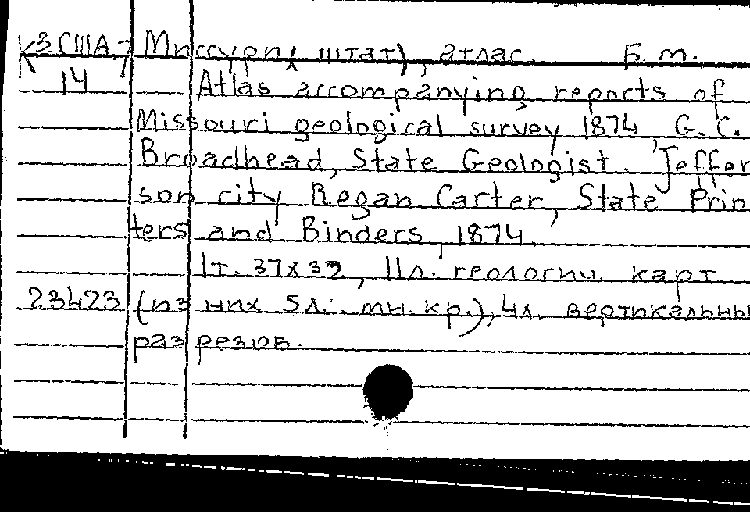 К3 США, Миссури (штат), атлас. Б.м.
14 Atlas accompanying reports of
Missouri geological survey 1874, G.C.
Broadhead, State Geologist. Jeffer
son city Regan Carter, State Prin
ters and Binders, 1874.
1т. 37х32, 11л. геологич. карт
23423 (из них 5л. мн.кр.), 4л. вертикальны
разрезов.